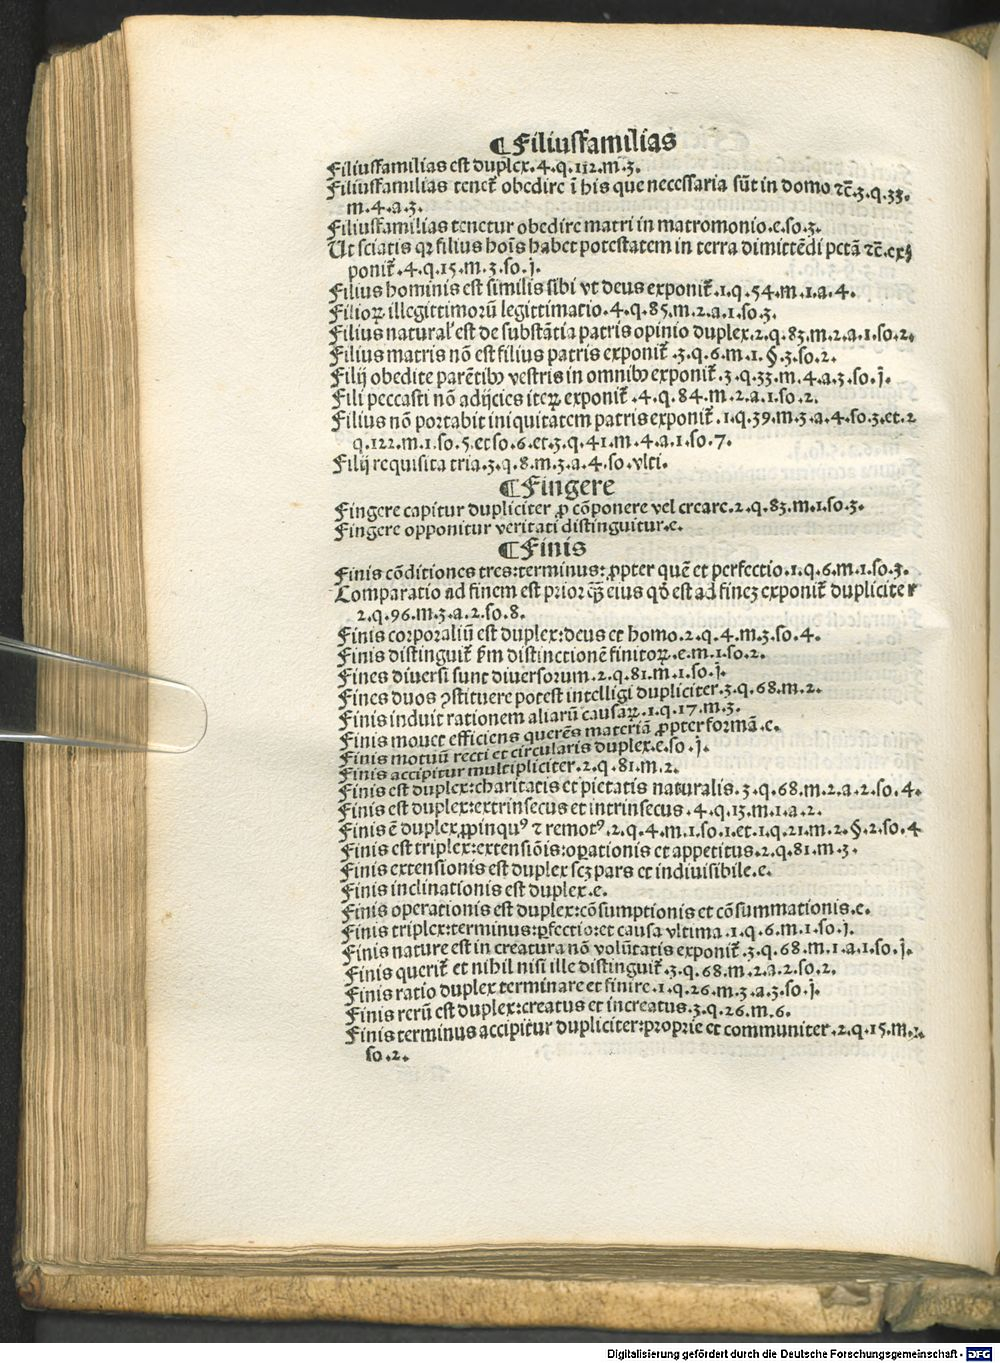 ¶ Filiusfamilias
Filiusfamilias est duplex.4.q.112.m.3.
Filiusfamilias tenet̃ obedire ĩ his que necessaria sũt in domo ⁊c̃.3.q.33.
m.4.a.3.
Filiusfamilias tenetur obedire matri in matromonio.e.so.3.
Ut sciatis qꝛ filius hoĩs habet potestatem in terra dimittẽdi pctã ⁊c̃.ex
ponit̃.4.q.15.m.3.so.j.
Filius hominis est similis sibi vt deus exponit̃.1.q.54.m.1.a.4.
Filioꝝ illegittimorũ legittimatio.4.q.85.m.2.a.1.so.3.
Filius natural' est de substãtia patris opinio duplex.2.q.83.m.2.a.1.so.2.
Filius matris nõ est filius patris exponit̃.3.q.6.m.1.§.3.so.2.
Filij obedite parẽtibꝫ vestris in omnibꝫ exponit̃.3.q.33.m.4.a.3.so.j.
Fili peccasti nõ adijcies iteꝝ exponit̃.4.q.84.m.2.a.1.so.2.
Filius nõ portabit iniquitatem patris exponit̃.1.q.39.m.3.a.4.so.3.et.2
q.122.m.1.so.5.et so.6.et.3.q.41.m.4.a.1.so.7.
Filij requisita tria.3.q.8.m.3.a.4.so.vlti.
¶ Fingere
Fingere capitur dupliciter ꝓ cõponere vel creare.2.q.83.m.1.so.3.
Fingere opponitur veritati distinguitur.e.
¶ Finis
Finis cõditiones tres:terminus:ꝓpter quẽ et perfectio.1.q.6.m.1.so.3.
Comparatio ad finem est prior qꝫ̃ eius qd̃ est ad fineꝫ exponit̃ dupliciter
2.q.96.m.3.a.2.so.8.
Finis corporaliũ est duplex:deus et homo.2.q.4.m.3.so.4.
Finis distinguit̃ ẜm distinctionẽ finitoꝝ.e.m.1.so.2.
Fines diuersi sunt diuersorum.2.q.81.m.1.so.j.
Fines duos ꝯstituere potest intelligi dupliciter.3.q.68.m.2.
Finis induit rationem aliarũ causaꝝ.1.q.17.m.3.
Finis mouet efficiens querẽs materiã ꝓpter formã.e.
Finis motuũ recti et circularis duplex.e.so.j.
Finis accipitur multipliciter.2.q.81.m.2.
Finis est duplex:charitatis et pietatis naturalis.3.q.68.m.2.a.2.so.4.
Finis est duplex:extrinsecus et intrinsecus.4.q.13.m.1.a.2.
Finis ẽ duplex ꝓpinquꝰ ⁊ remotꝰ.2.q.4.m.1.so.1.et.1.q.21.m.2.§.2.so.4
Finis est triplex:extensiõis:oꝑationis et appetitus.2.q.81.m.3.
Finis extensionis est duplex scꝫ pars et indiuisibile.e.
Finis inclinationis est duplex.e.
Finis operationis est duplex:cõsumptionis et cõsummationis.e.
Finis triplex:terminus:ꝑfectio:et causa vltima.1.q.6.m.1.so.j.
Finis nature est in creatura nõ volũtatis exponit̃.3.q.68.m.1.a.1.so.j.
Finis querit̃ et nihil nisi ille distinguit̃.3.q.68.m.2.a.2.so.2.
Finis ratio duplex terminare et finire.1.q.26.m.3.a.3.so.j.
Finis rerũ est duplex:creatus et increatus.3.q.26.m.6.
Finis terminus accipitur dupliciter:proprie et communiter.2.q.15.m.1.
so.2.
Digitalisierung gefördert durch die Deutsche Forschungsgemeinschaft - DFG